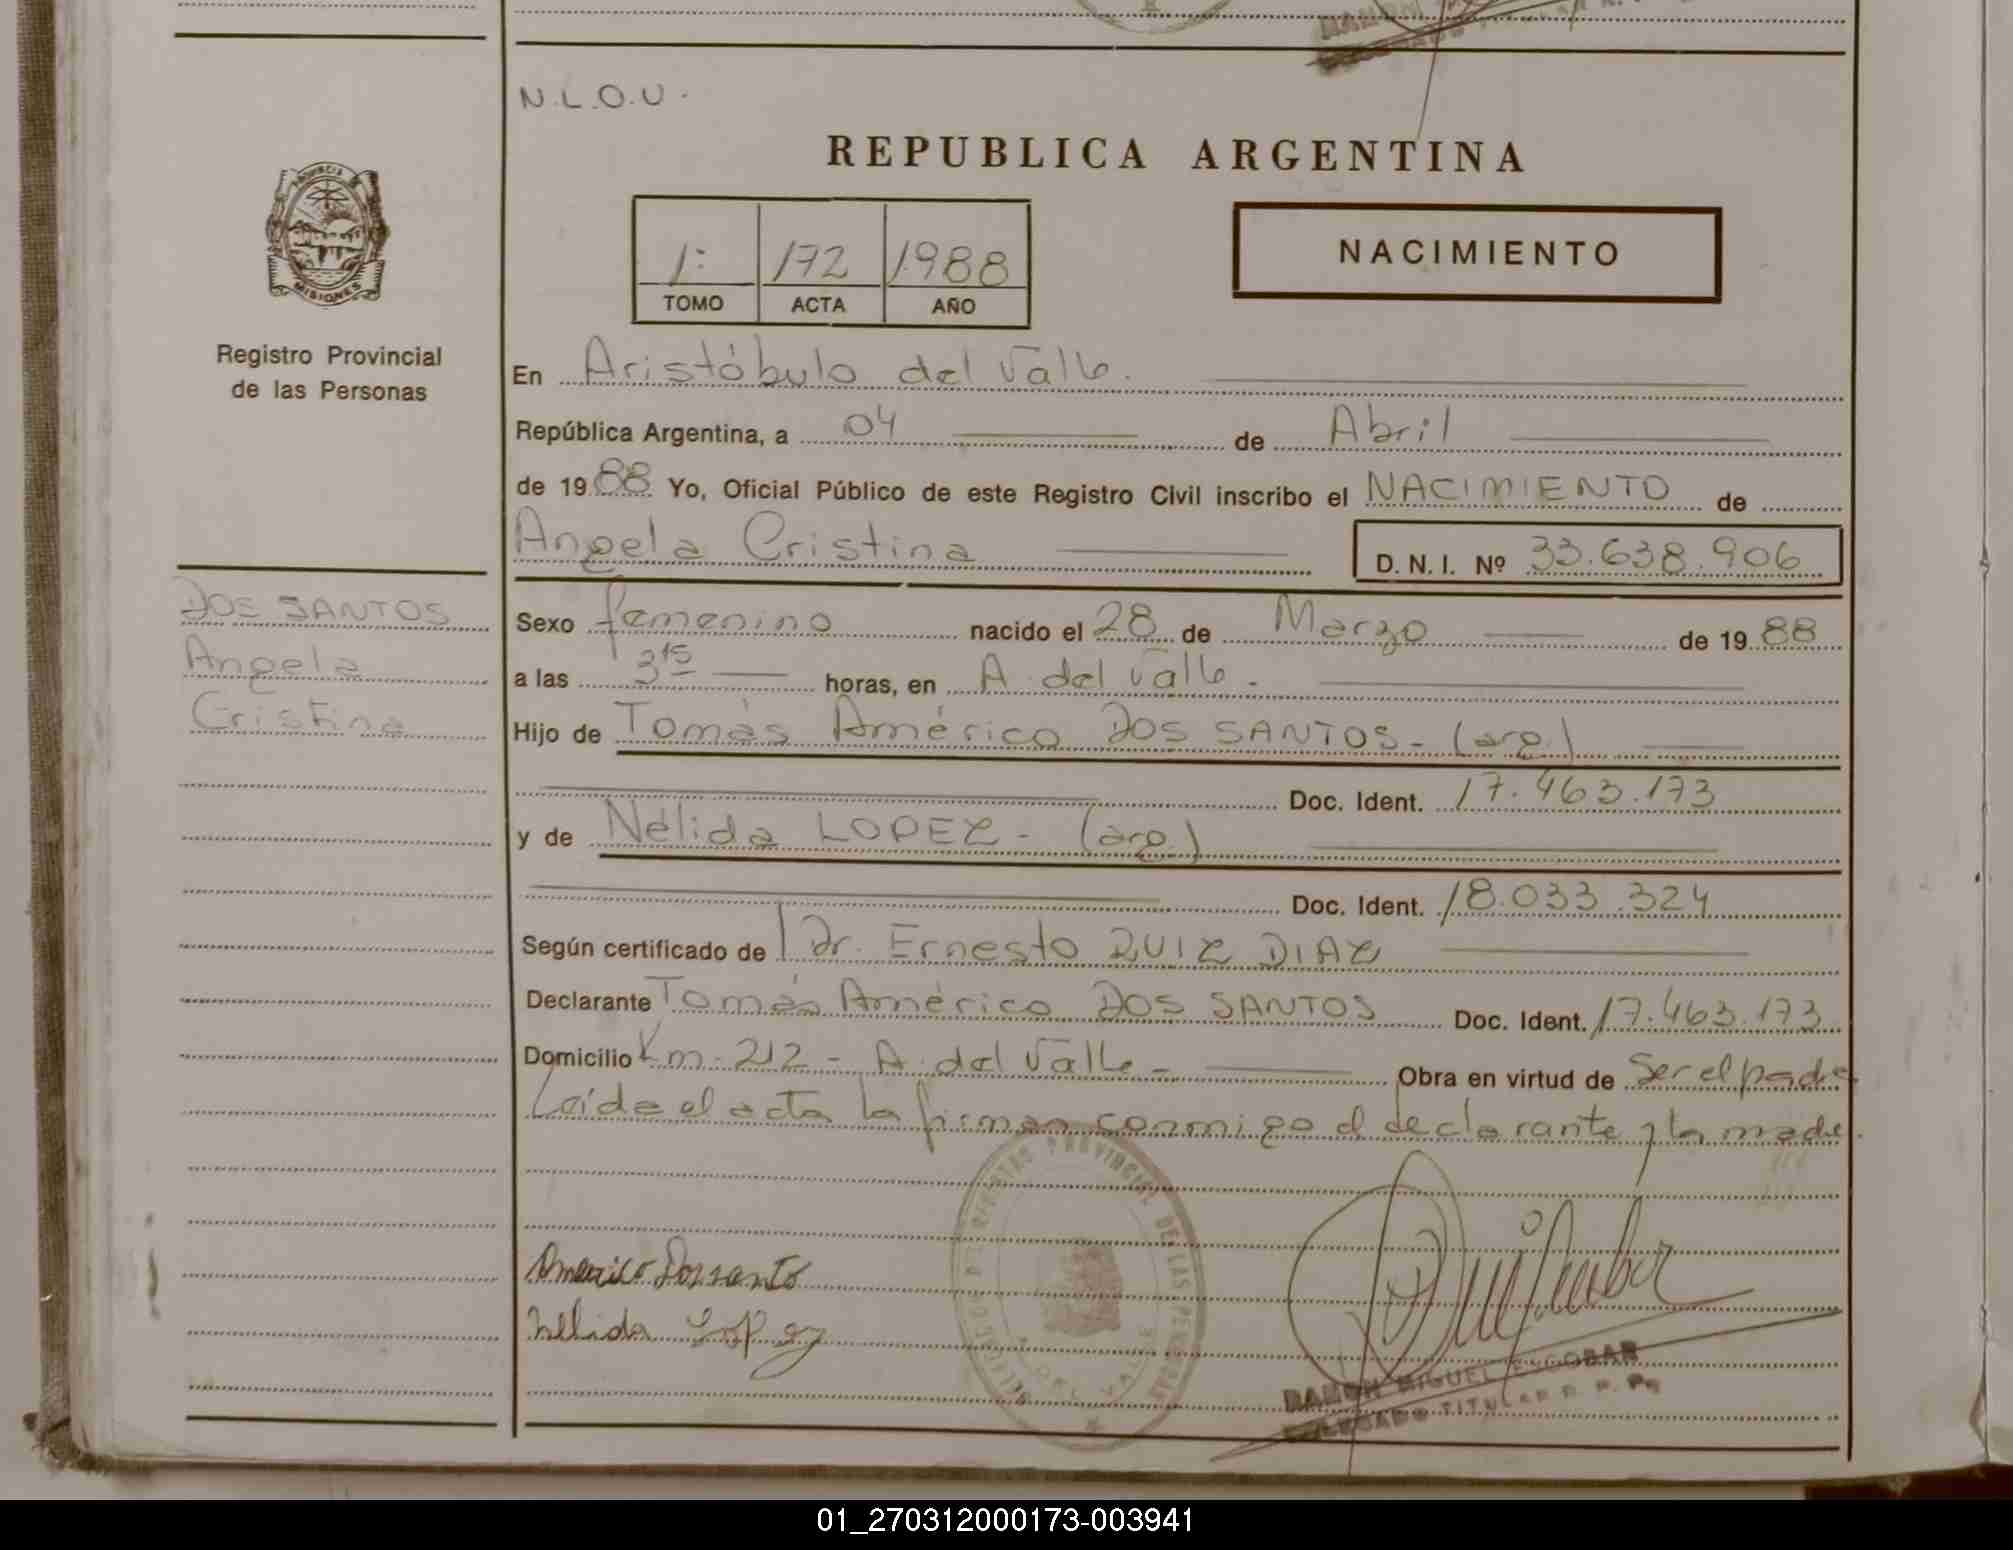 N.L.O.U.
REPUBLICA ARGENTINA
1: 172 1988
TOMO ACTA AÑO
NACIMIENTO
MISIONES
Registro Provincial
de las Personas
En Aristóbulo del Valle.
República Argentina, a 04 de Abril
de 1988 Yo, Oficial Público de este Registro Civil inscribo el NACIMIENTO de
Angela Cristina D. N. I. Nº 33.638.906
DOS SANTOS
Angela
Cristina
Sexo femenino nacido el 28 de Marzo de 1988
a las 3 15 horas, en A. del Valle.
Hijo de Tomás Américo DOS SANTOS- (arg.)
Doc. Ident. 17.463.173
y de Nélida LOPEZ- (arg.)
Doc. Ident. 18.033.324
Según certificado de Dr. Ernesto RUIZ DIAZ
Declarante Tomás Américo DOS SANTOS Doc. Ident. 17.463.173
Domicilio Km. 212 - A. del Valle - Obra en virtud de Ser el padre
Leída el acta la firman conmigo el declarante y la madre.
REGISTRO PROVINCIAL DE LAS PERSONAS
DEL VALLE
Americo Dossanto
Nelida Lopez
RAMON MIGUEL ESCOBAR
DELEGADO TITULAR R. P. P.
01_270312000173-003941